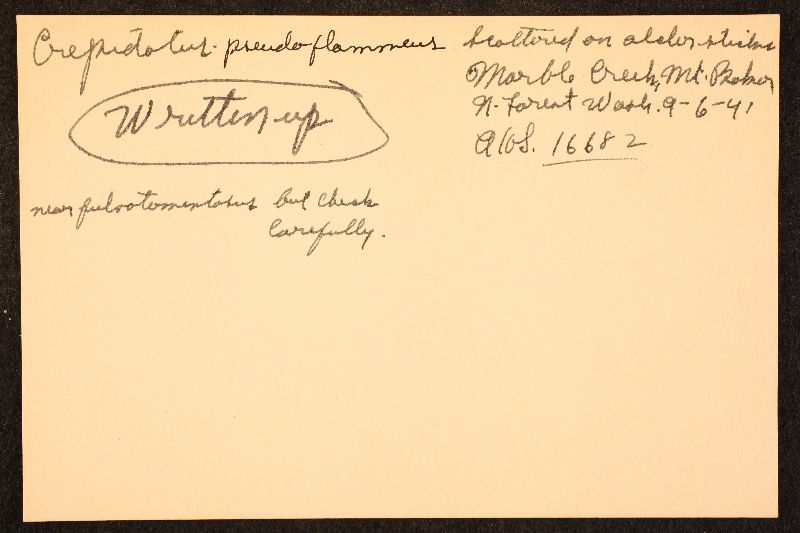 Crepidotus pseudoflammeus
Written up
near fulvotomentosus but check
carefully.
scattered on alder sticks
Marble Creek, Mt. Baker
N. Forest Wash. 9-6-41
AHS. 16682